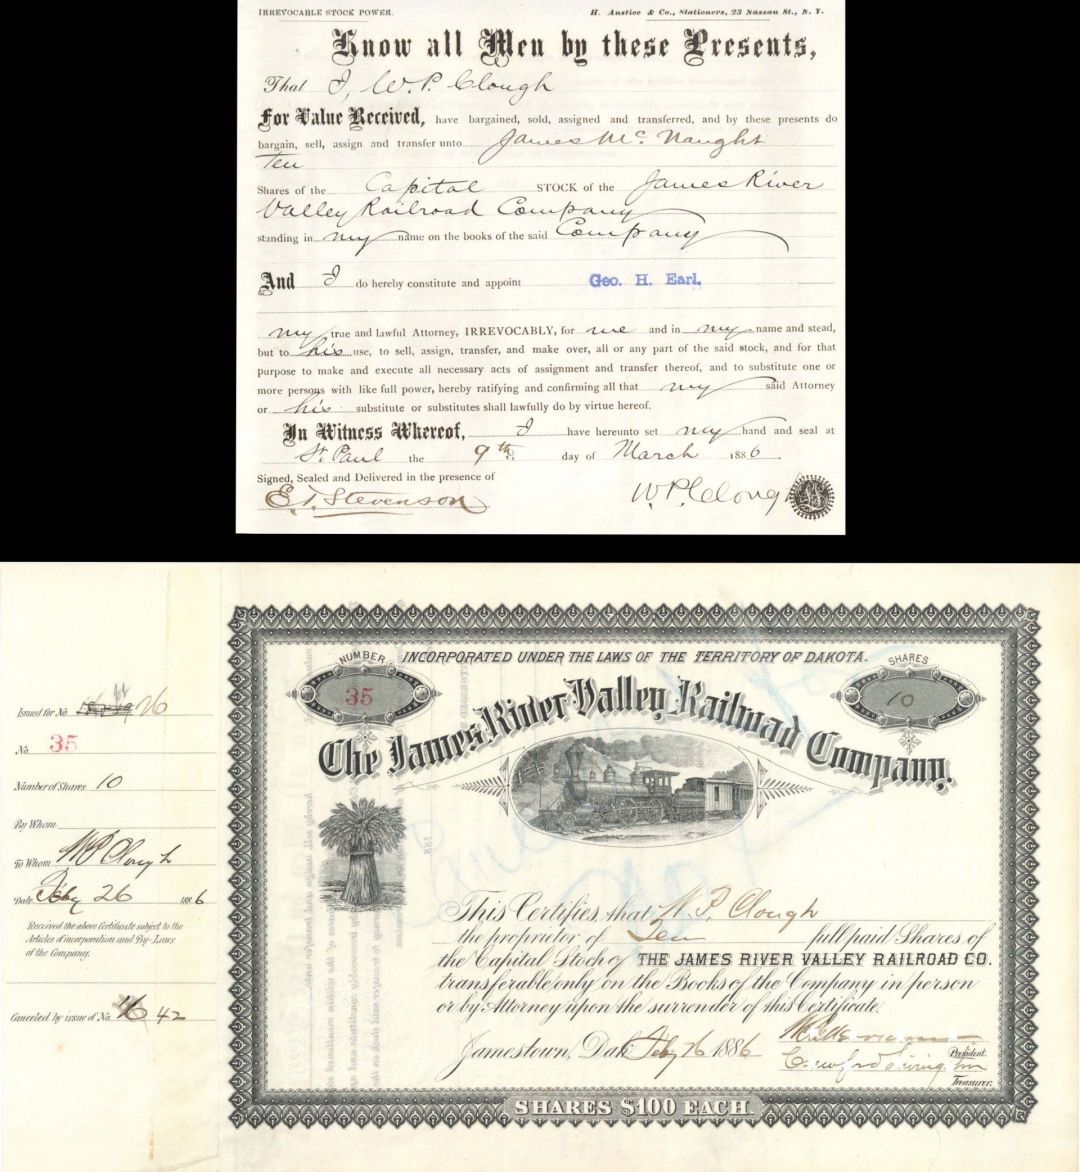 IRREVOCABLE STOCK POWER. H. Anstice & Co., Stationers, 23 Nassau St., N. Y.
Know all Men by these Presents,
That I, W. P. Clough
For Value Received, have bargained, sold, assigned and transferred, and by these presents do
bargain, sell, assign and transfer unto James McNaught
Ten
Shares of the Capital STOCK of the James River
Valley Railroad Company
standing in my name on the books of the said Company
And I do hereby constitute and appoint Geo. H. Earl.
my true and lawful Attorney, IRREVOCABLY, for me and in my name and stead,
but to his use, to sell, assign, transfer, and make over, all or any part of the said stock, and for that
purpose to make and execute all necessary acts of assignment and transfer thereof, and to substitute one or
more persons with like full power, hereby ratifying and confirming all that my said Attorney
or his substitute or substitutes shall lawfully do by virtue hereof.
In Witness Whereof, I have hereunto set my hand and seal at
St. Paul the 9th. day of March 1886.
Signed, Sealed and Delivered in the presence of
E. T. Stevenson W. P. Clough
INCORPORATED UNDER THE LAWS OF THE TERRITORY OF DAKOTA.
NUMBER
35
SHARES
10
The James River Valley Railroad Company.
This Certifies that W. P. Clough
the proprietor of Ten full paid Shares of
the Capital Stock of THE JAMES RIVER VALLEY RAILROAD CO.
transferable only on the Books of the Company in person
or by Attorney upon the surrender of this Certificate.
Jamestown, Dak. Feby 26 1886
President.
Treasurer.
SHARES $100 EACH.
Issued for No. 26
No. 35
Number of Shares 10
By Whom
To Whom W P Clough
Date Feby 26 1886
Received the above Certificate subject to the
Articles of incorporation and By-Laws
of the Company.
Canceled by issue of No. 42